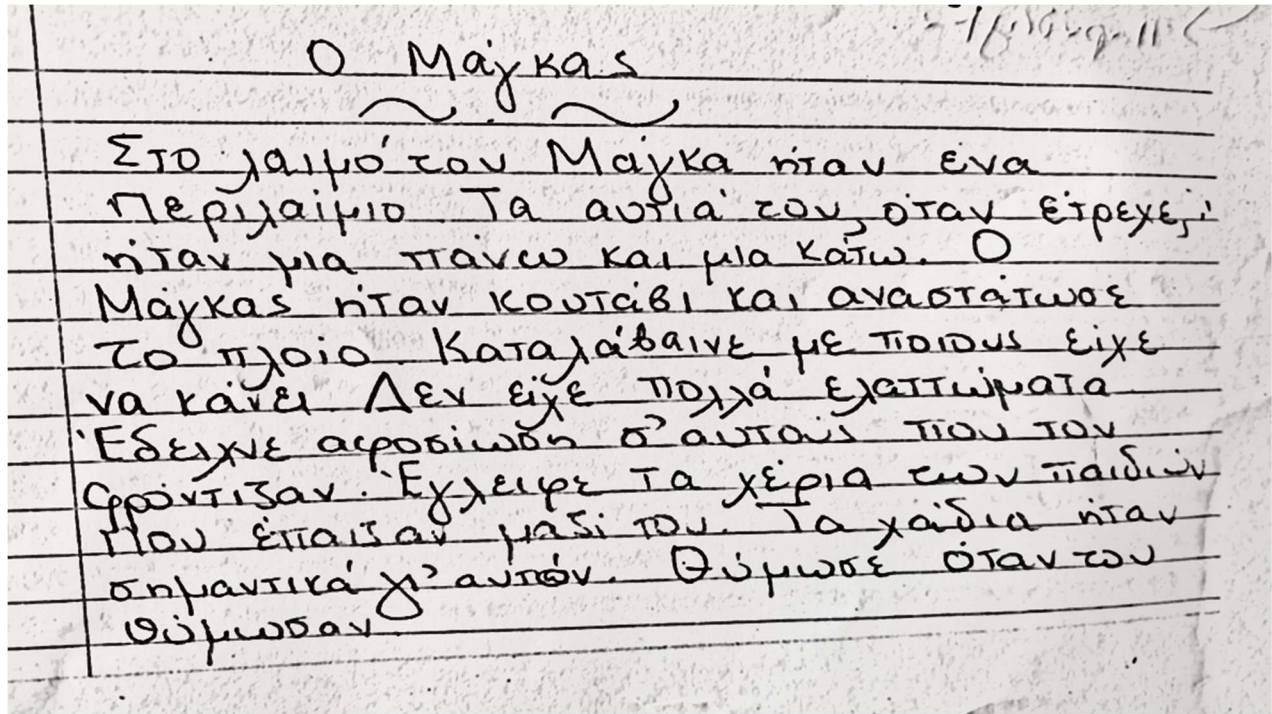 Ο Μάγκας
Στο λαιμό του Μάγκα ήταν ένα
περιλαίμιο. Τα αυτιά του, όταν έτρεχε,
ήταν μια πάνω και μια κάτω. Ο
Μάγκας ήταν κουτάβι και αναστάτωσε
το πλοίο. Καταλάβαινε με ποιους είχε
να κάνει. Δεν είχε πολλά ελαττώματα
Έδειχνε αφοσίωση σ' αυτούς που τον
φρόντιζαν. Έγλειφε τα χέρια των παιδιών
που έπαιζαν μαζί του. Τα χάδια ήταν
σημαντικά γι' αυτόν. Θύμωσε όταν του
θύμωσαν